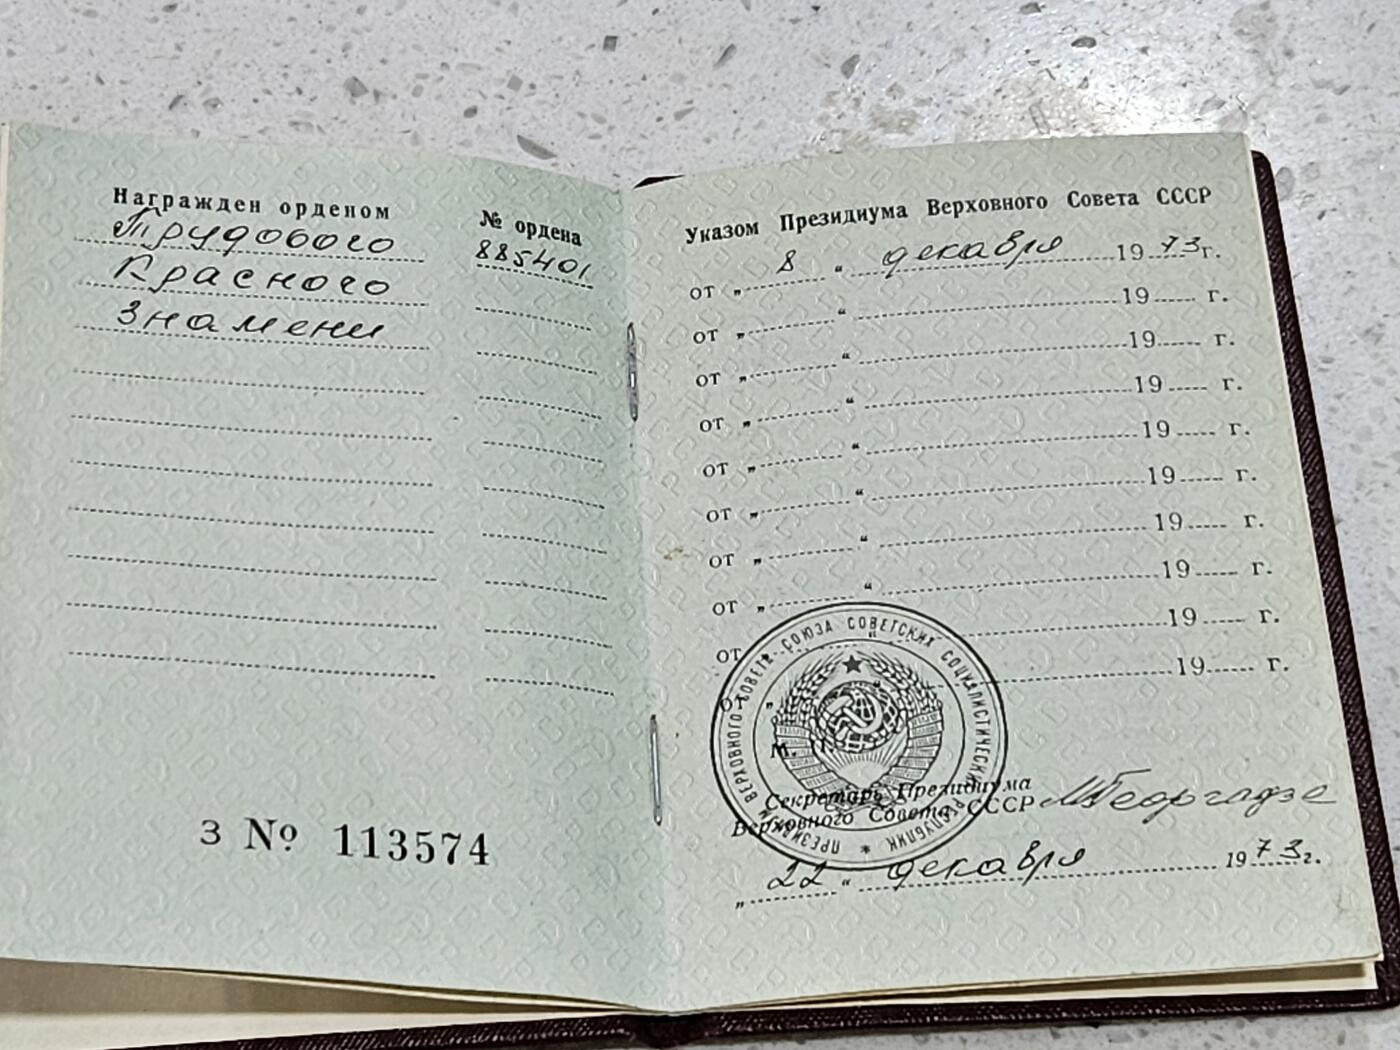 Награжден орденом
№ ордена
Трудового
885401
Красного
Знамени
З № 113574
Указом Президиума Верховного Совета СССР
от „ 8 “ декабря 19 73 г.
от „ “ 19 г.
от „ “ 19 г.
от „ “ 19 г.
от „ “ 19 г.
от „ “ 19 г.
от „ “ 19 г.
от „ “ 19 г.
от „ “ 19 г.
от „ “ 19 г.
М.
ПРЕЗИДИУМ ВЕРХОВНОГО СОВЕТА СОЮЗА СОВЕТСКИХ СОЦИАЛИСТИЧЕСКИХ РЕСПУБЛИК
Секретарь Президиума
Верховного Совета СССР МГеоргадзе
„ 22 “ декабря 19 73 г.